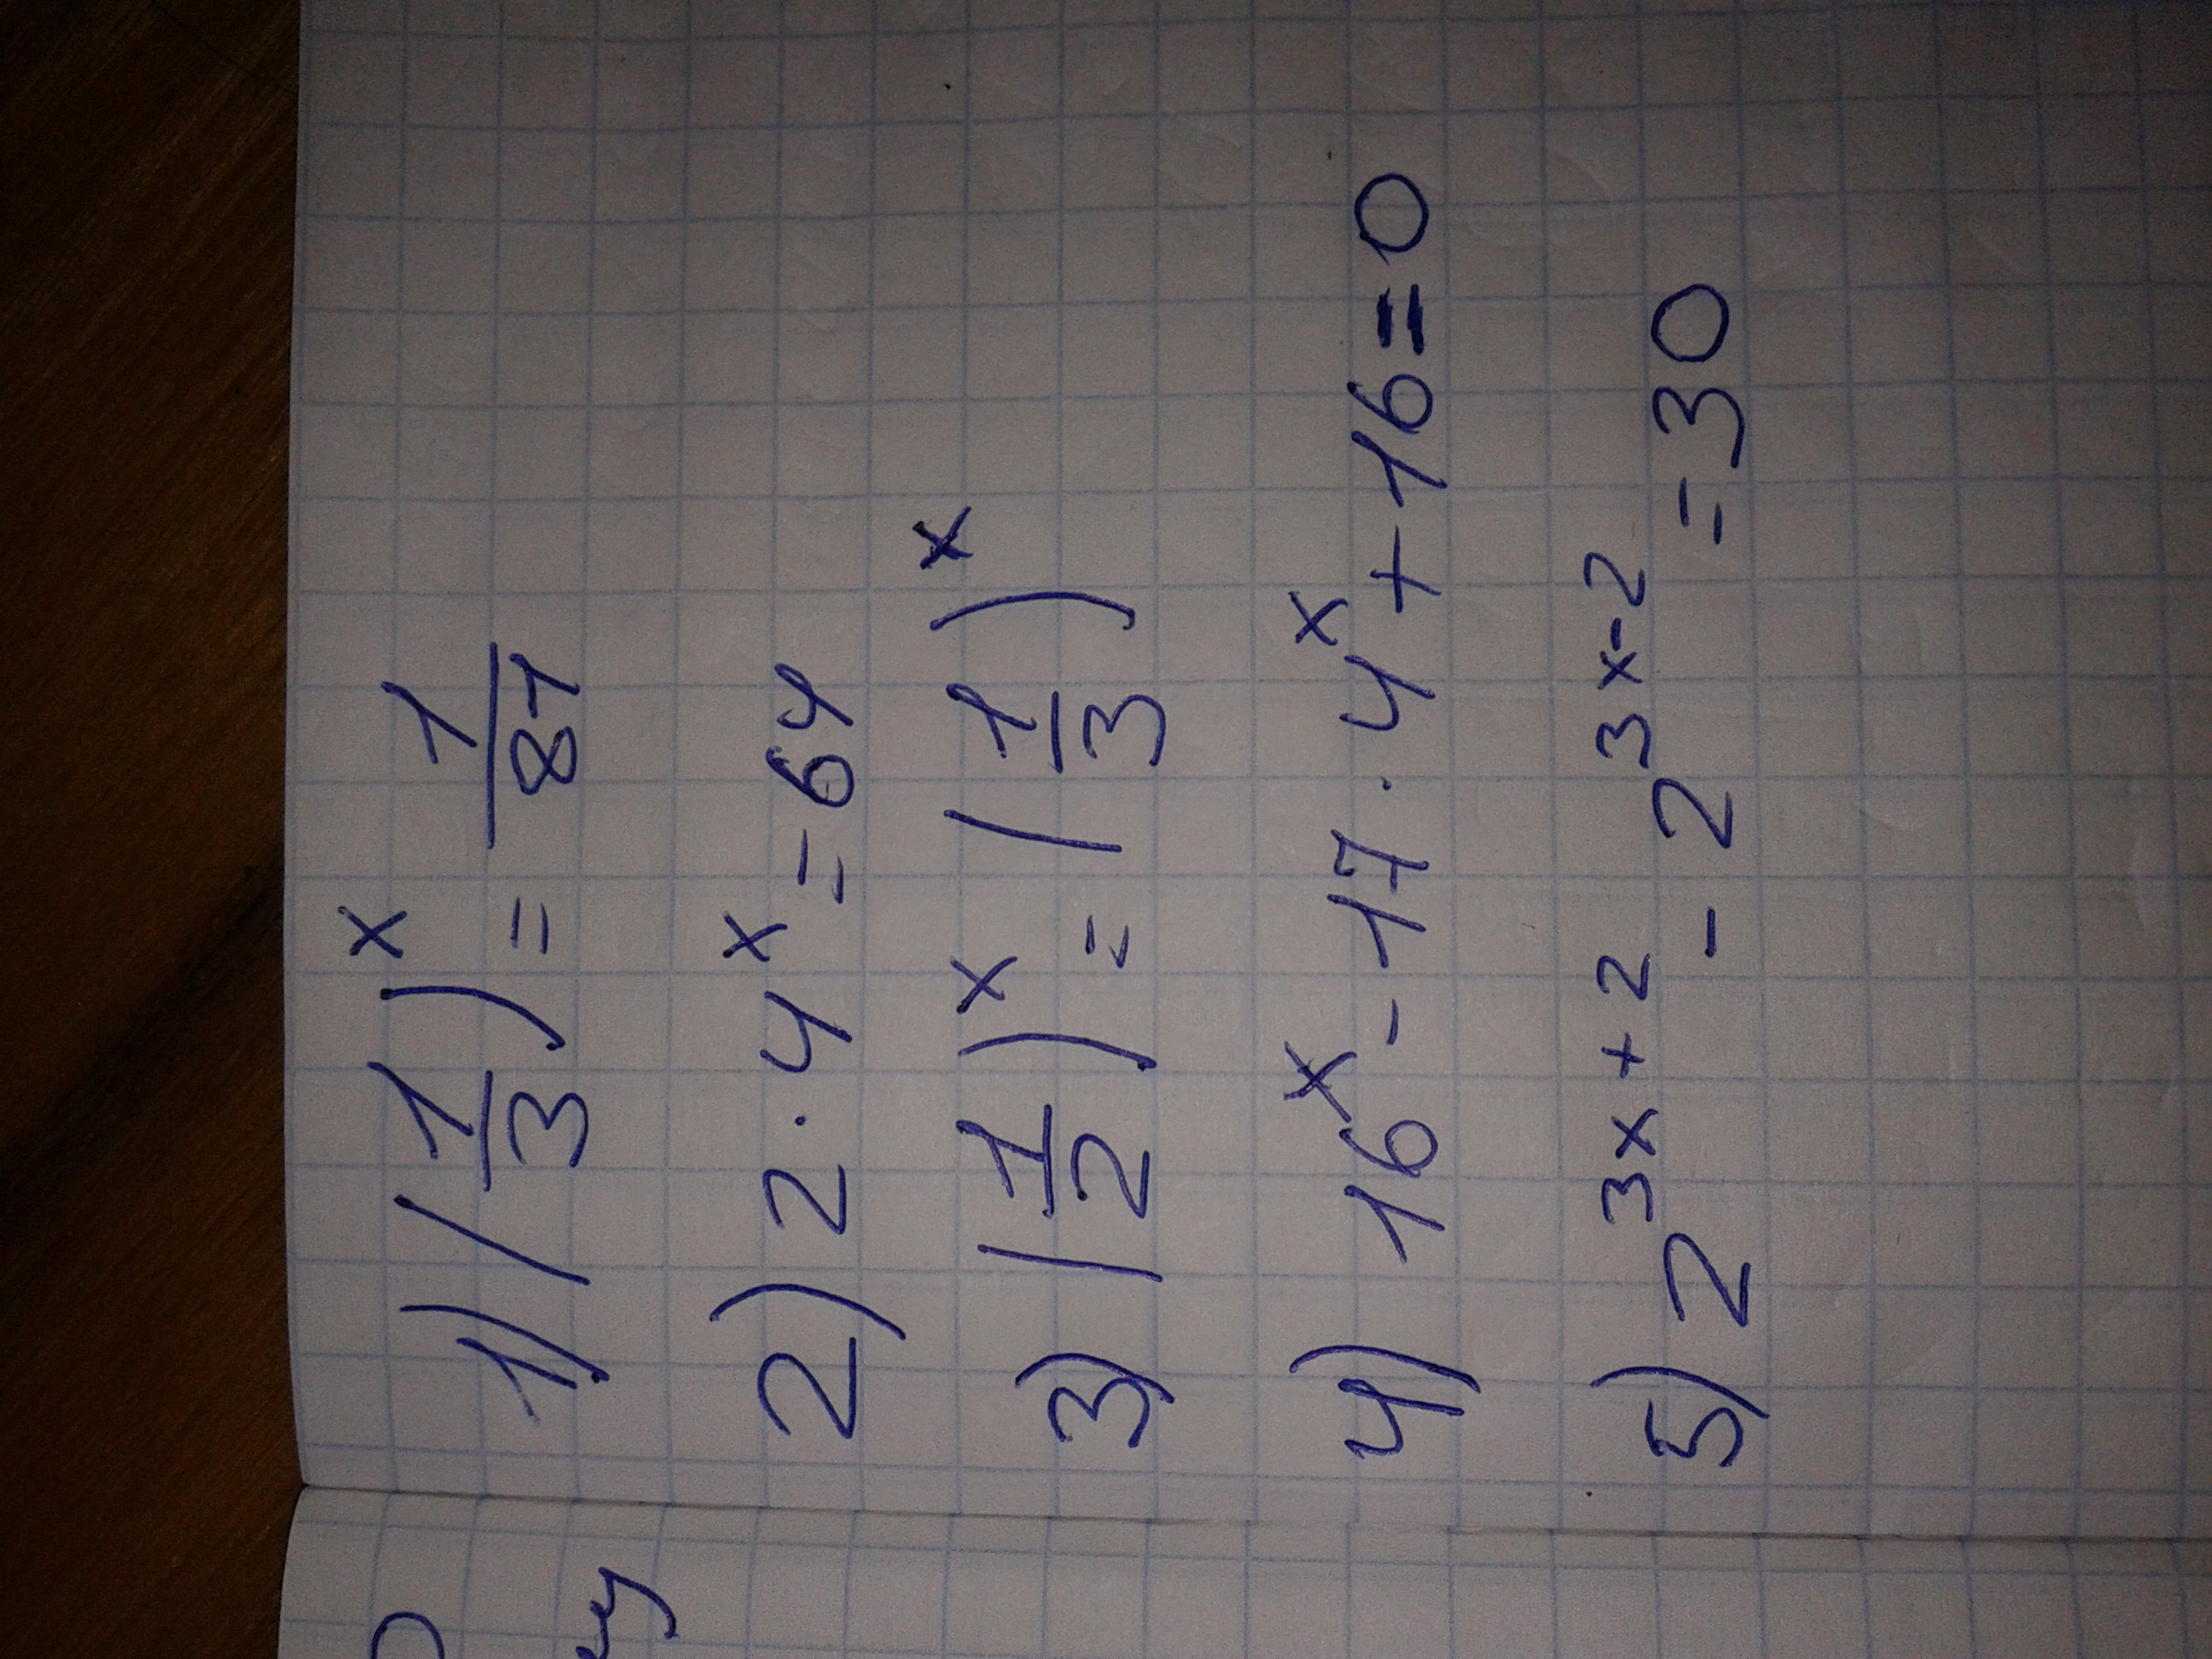 1) (1/3)^x = 1/81
2) 2 · 4^x = 64
3) (1/2)^x = (1/3)^x
4) 16^x - 17 · 4^x + 16 = 0
5) 2^(3x+2) - 2^(3x-2) = 30